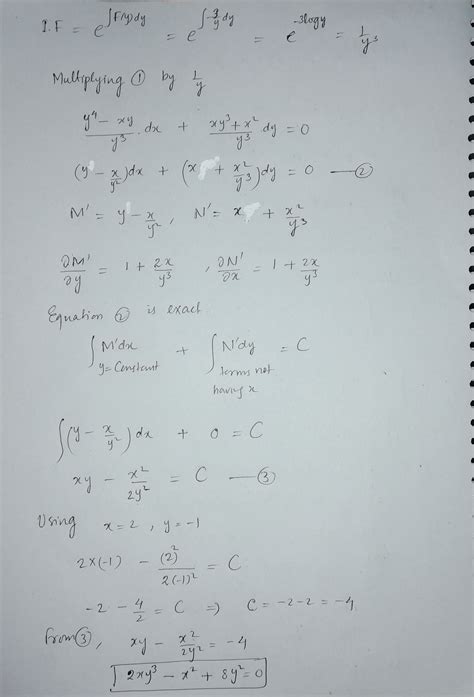 I.F = e^{∫F(y)dy} = e^{∫-3/y dy} = e^{-3logy} = 1/y³
Multiplying ① by 1/y
(y⁴ - xy)/y³ . dx + (xy³ + x²)/y³ dy = 0
(y - x/y²)dx + (x + x²/y³)dy = 0 — ②
M' = y - x/y² , N' = x + x²/y³
∂M'/∂y = 1 + 2x/y³ , ∂N'/∂x = 1 + 2x/y³
Equation ② is exact
∫M'dx + ∫N'dy = C
y = Constant terms not
having x
∫(y - x/y²)dx + 0 = C
xy - x²/2y² = C — ③
Using x = 2 , y = -1
2×(-1) - (2)²/2(-1)² = C
-2 - 4/2 = C => C = -2-2 = -4
From ③, xy - x²/2y² = -4
2xy³ - x² + 8y² = 0